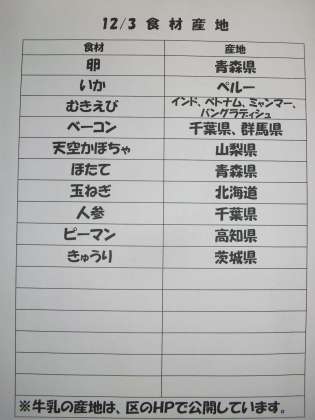 12/3 食材産地
食材 産地
卵 青森県
いか ペルー
むきえび インド、ベトナム、ミャンマー、
バングラディシュ
ベーコン 千葉県、群馬県
天空かぼちゃ 山梨県
ほたて 青森県
玉ねぎ 北海道
人参 千葉県
ピーマン 高知県
きゅうり 茨城県
※牛乳の産地は、区のHPで公開しています。